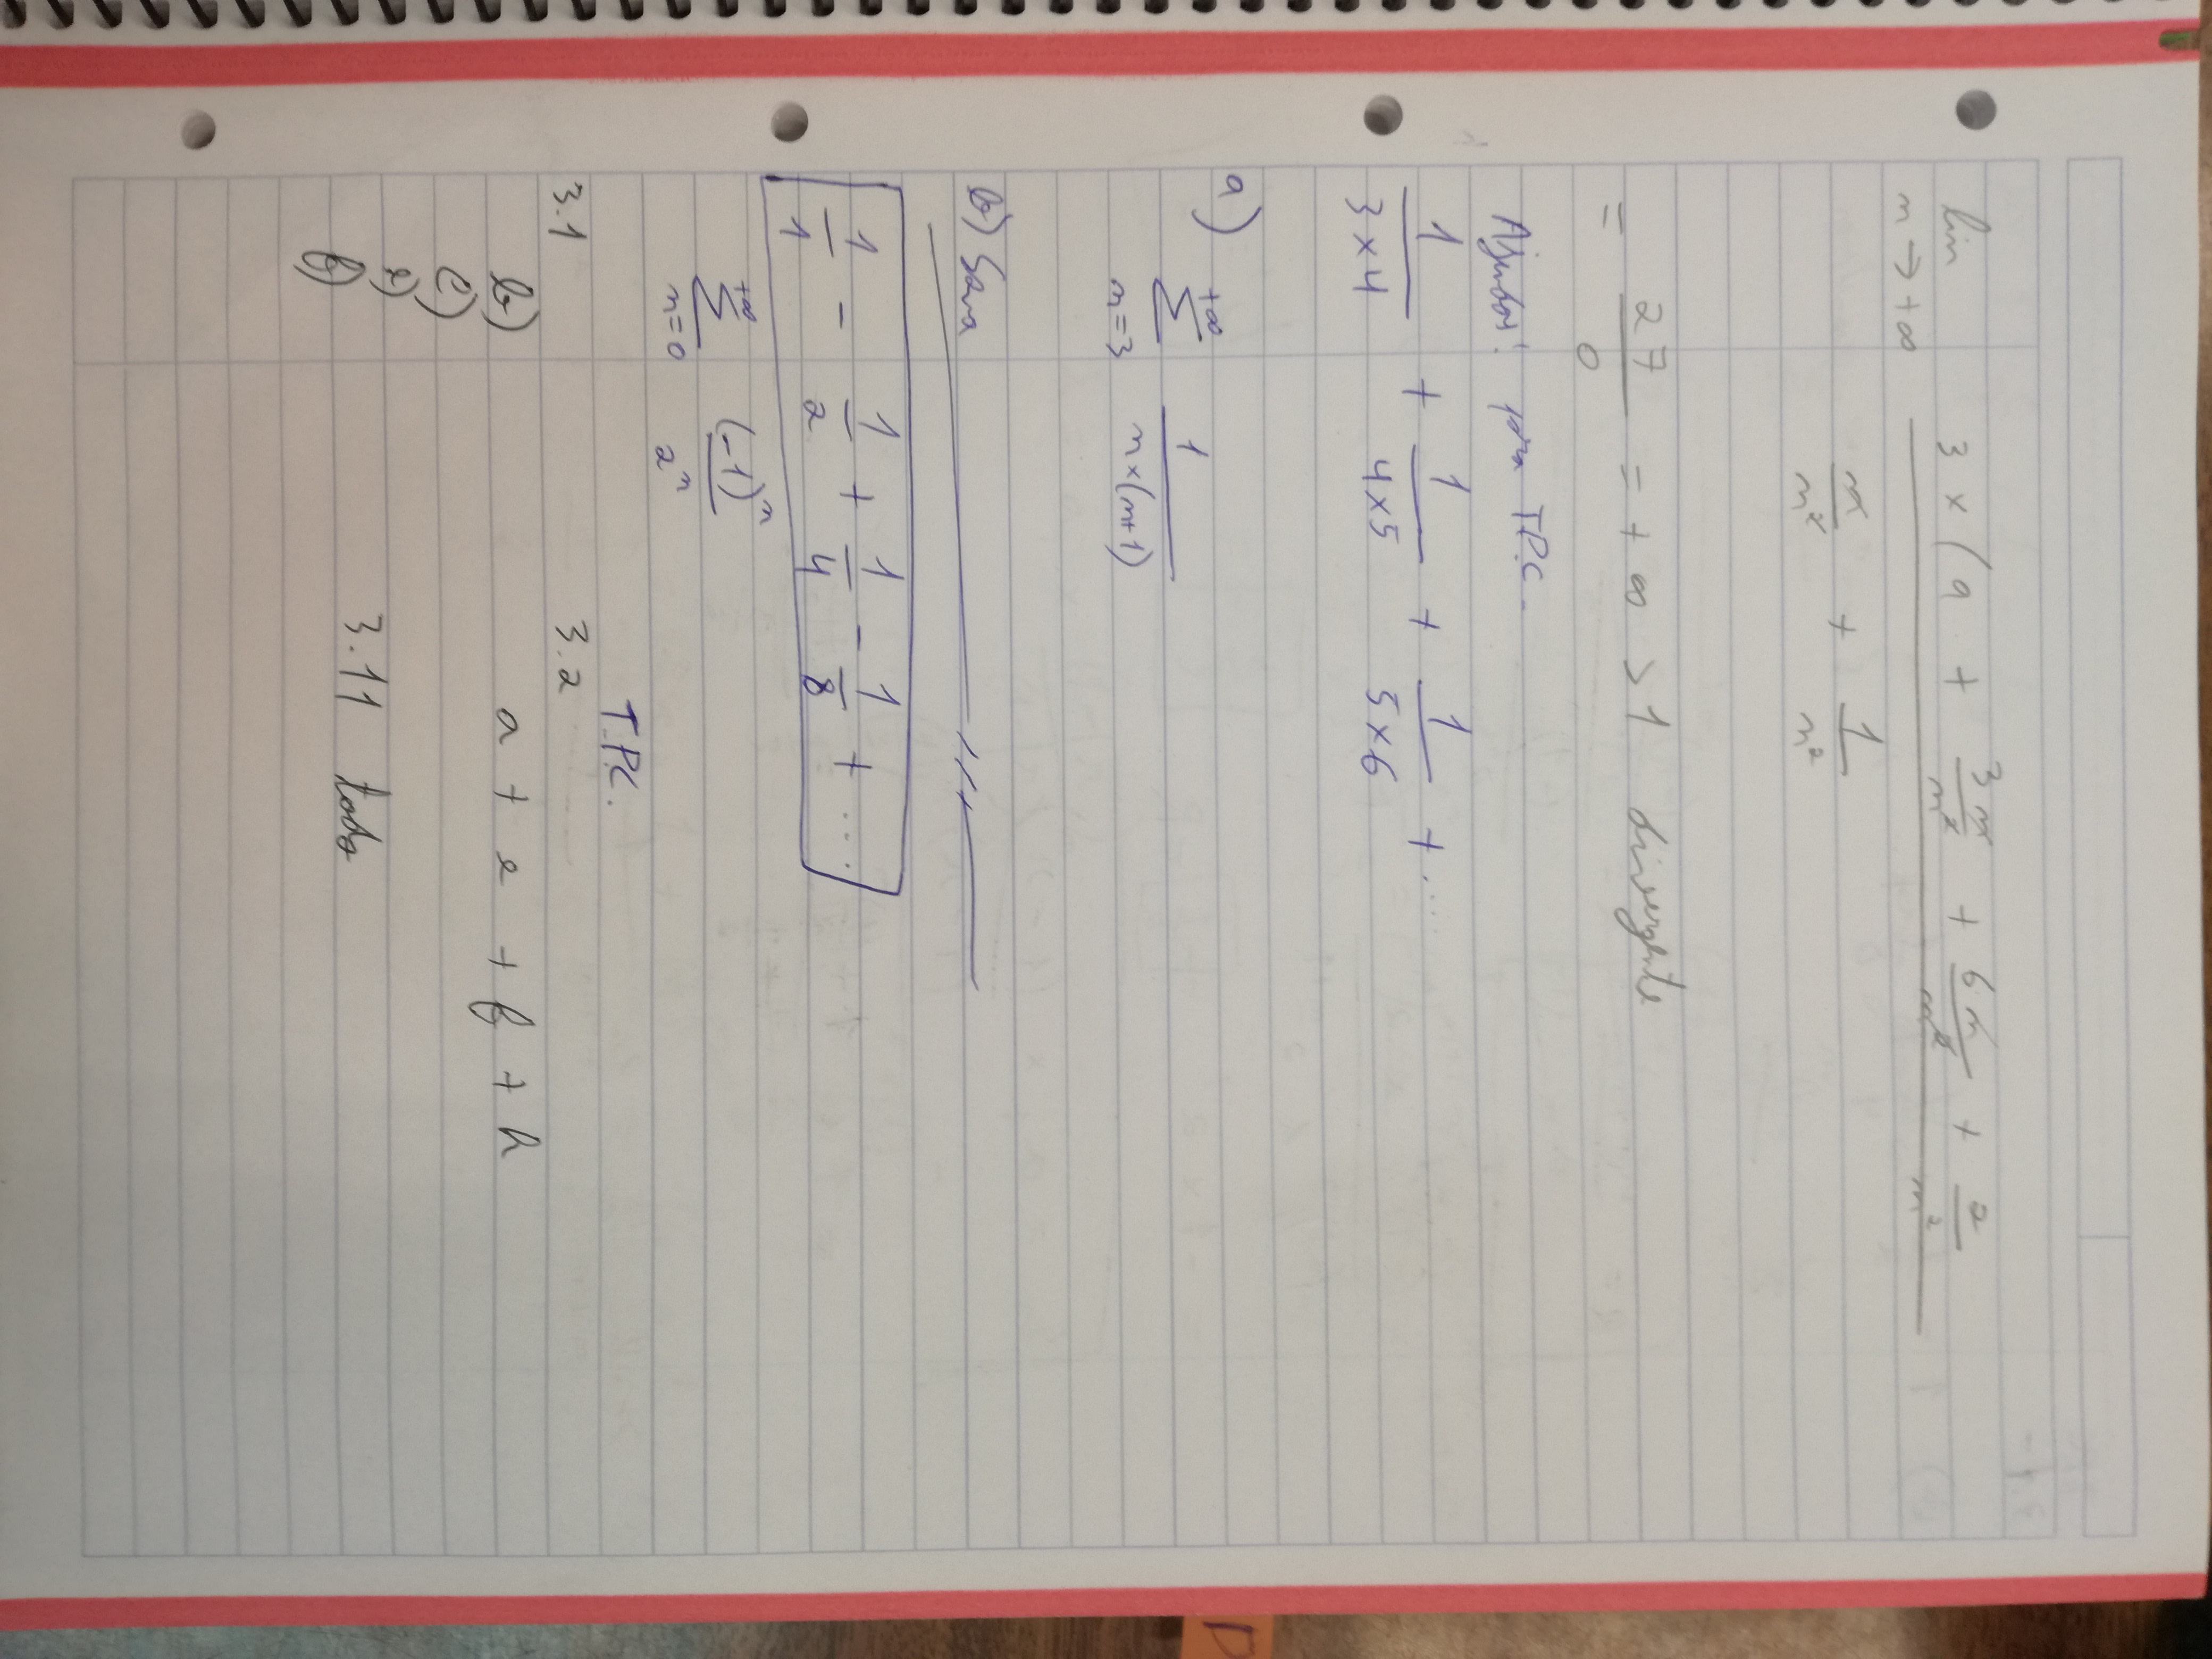 lim n→+∞ 3 × (9 + 3n/n² + 6n/n² + 2/n²
n/n² + 1/n²
= 27/0 = +∞ > 1 divergente
para T.P.C.
1/(3×4) + 1/(4×5) + 1/(5×6) + ...
a) +∞ Σ n=3 1/(n×(n+1))
b) Sara
1/1 - 1/2 + 1/4 - 1/8 + ...
+∞ Σ n=0 (-1)ⁿ/2ⁿ
T.P.C.
3.1 3.2
b) a + e + f + h
c)
e)
f) 3.11 todo
D